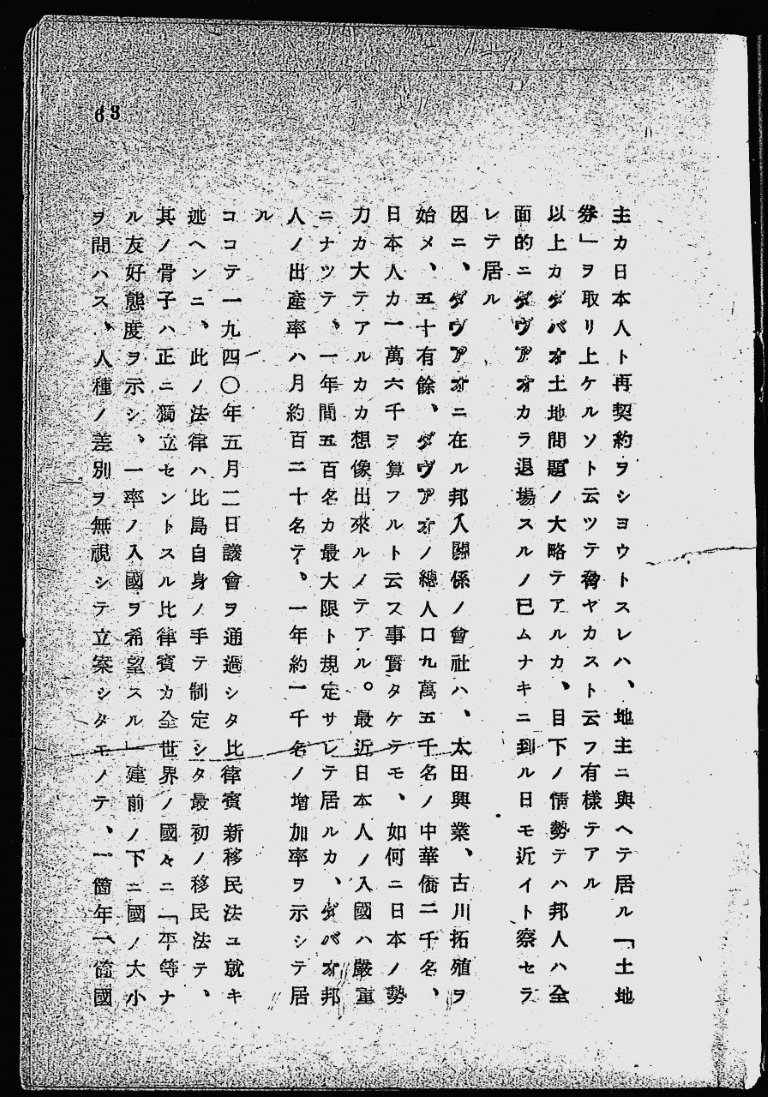 63
主カ日本人ト再契約ヲシヨウトスレハ、地主ニ與ヘテ居ル「土地
券」ヲ取リ上ケルソト云ツテ脅ヤカスト云フ有樣テアル
以上カダバオ土地問題ノ大略テアルカ、目下ノ情勢テハ邦人ハ全
面的ニダヴアオカラ退場スルノ已ムナキニ到ル日モ近イト察セラ
レテ居ル
因ニ、ダヴアオニ在ル邦人關係ノ會社ハ、太田興業、古川拓殖ヲ
始メ、五十有餘、ダヴアオノ總人口九萬五千名ノ中華僑二千名、
日本人カ一萬六千ヲ算フルト云ス事實タケテモ、如何ニ日本ノ勢
力カ大テアルカカ想像出來ルノテアル。最近日本人ノ入國ハ嚴重
ニナツテ、一年間五百名カ最大限ト規定サレテ居ルカ、ダバオ邦
人ノ出產率ハ月約百二十名テ、一年約一千名ノ增加率ヲ示シテ居
ル
ココテ一九四〇年五月二日議會ヲ通過シタ比律賓新移民法ユ就キ
述ヘンニ、此ノ法律ハ比島自身ノ手テ制定シタ最初ノ移民法テ、
其ノ骨子ハ正ニ獨立セントスル比律賓カ全世界ノ國々ニ「平等ナ
ル友好態度ヲ示シ、一率ノ入國ヲ希望スル」建前ノ下ニ國ノ大小
ヲ問ハス、人種ノ差別ヲ無視シテ立案シタモノテ、一箇年一箇國